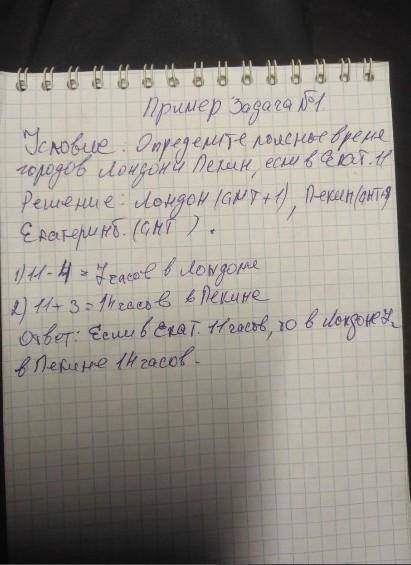 Пример Задача №1
Условие. Определите поясные время
городов Лондон и Пекин, если в Екат. 11
Решение: Лондон (GMT+1), Пекин (GMT+
Екатеринб. (GMT ).
1) 11-4 = 7 часов в Лондоне
2) 11+3 = 14 часов в Пекине
Ответ: Если в Екат. 11 часов, то в Лондоне 7,
в Пекине 14 часов.